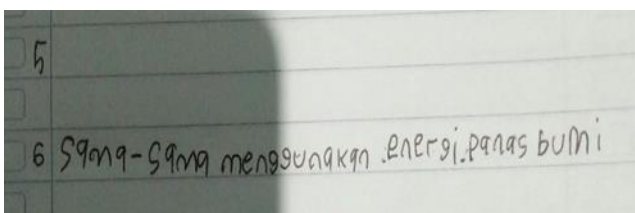 5
6 Sama-Sama menggunakan .energi.panas bumi